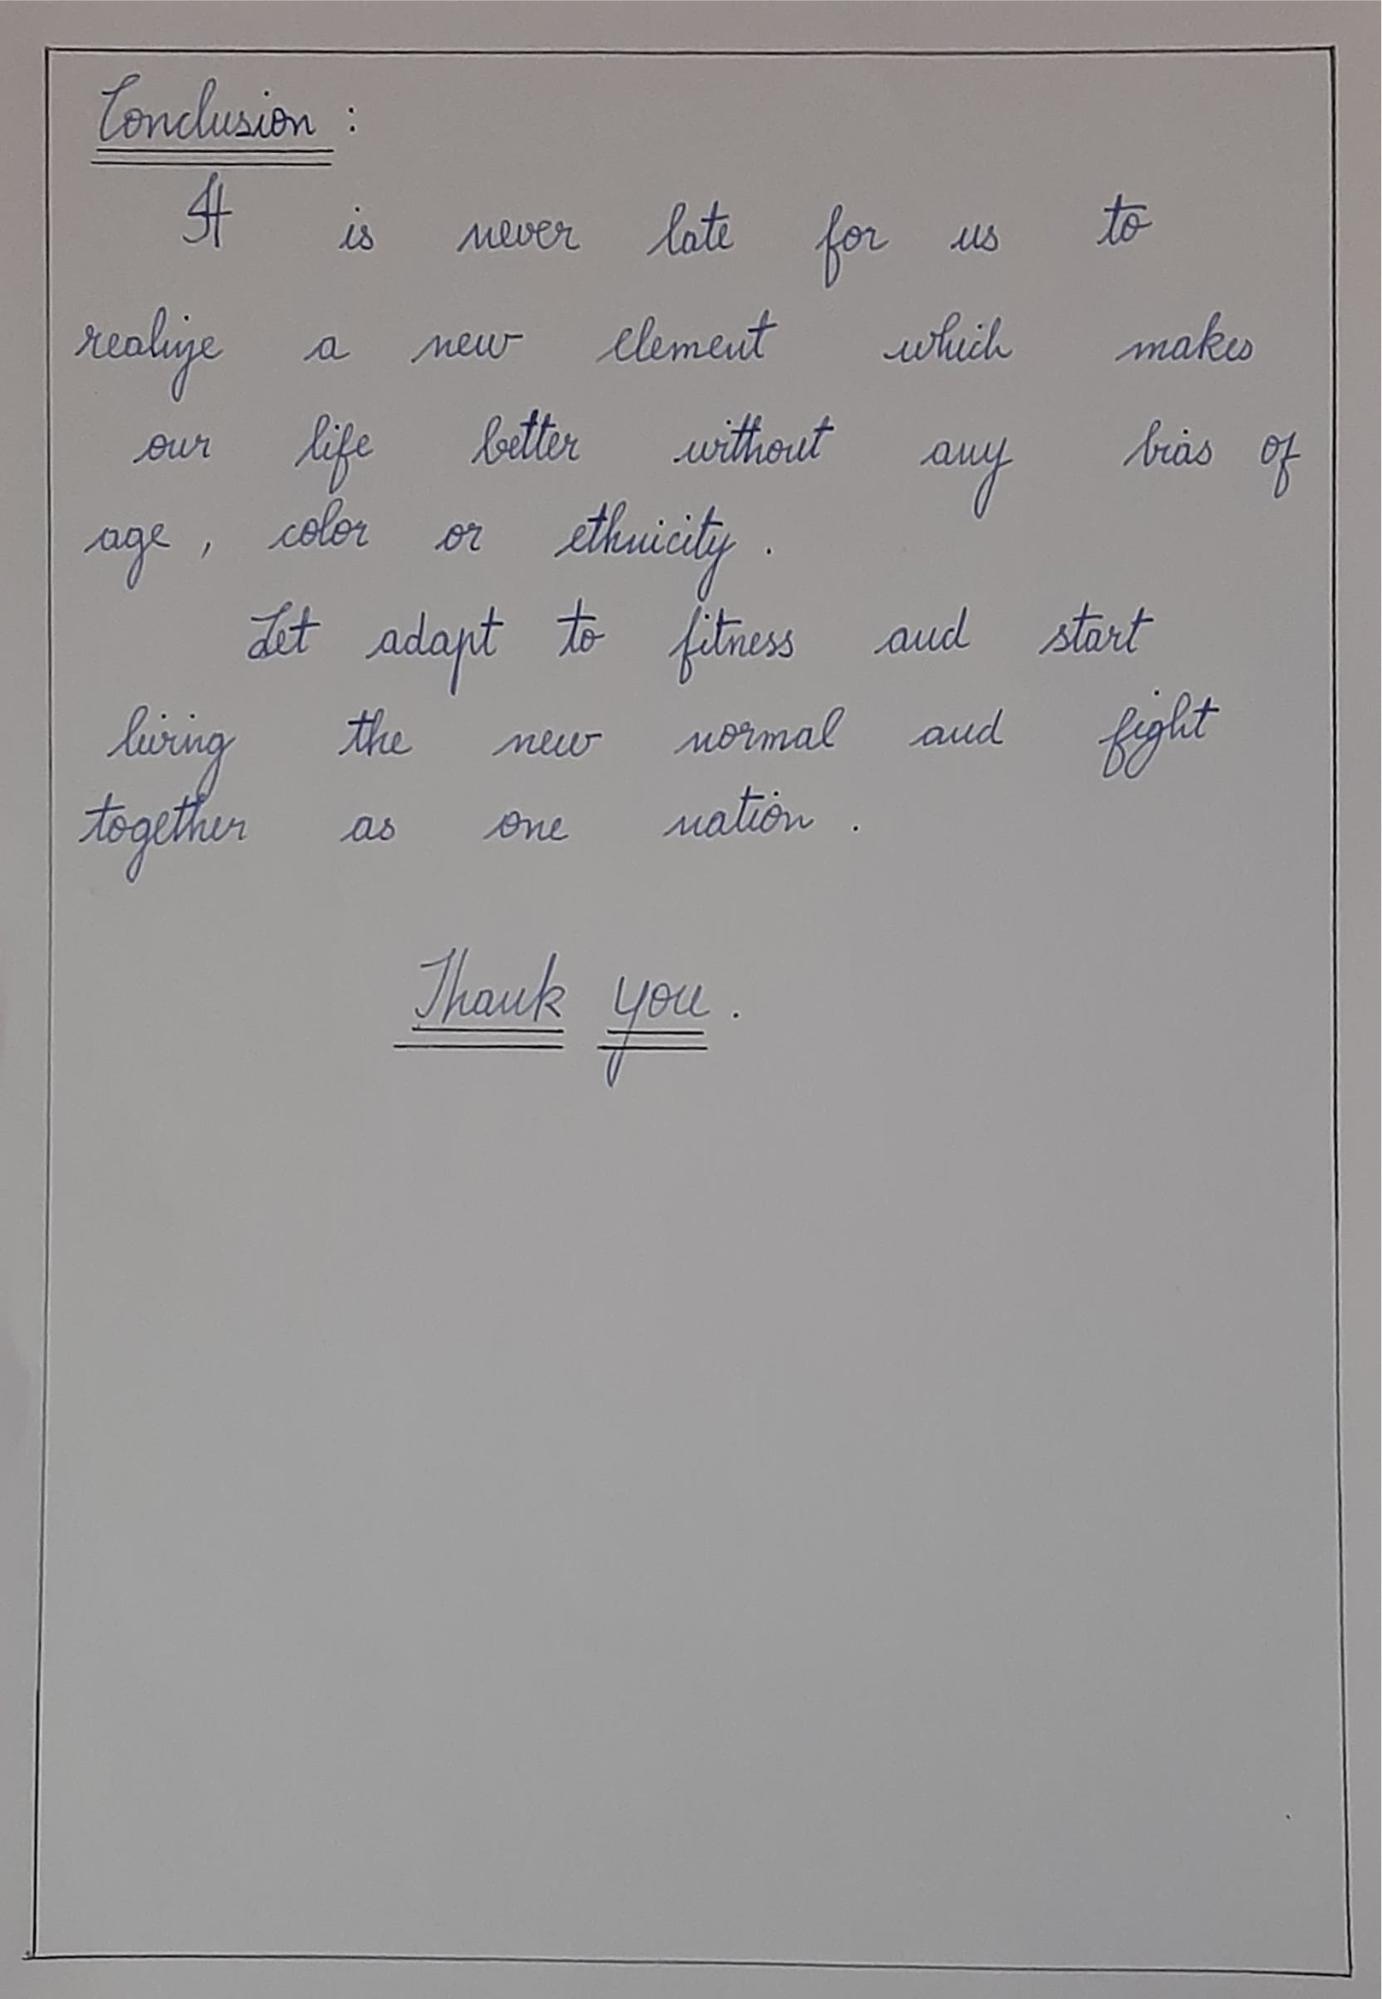 Conclusion :
It is never late for us to
realize a new element which makes
our life better without any bias of
age , color or ethnicity .
Let adapt to fitness and start
living the new normal and fight
together as one nation .
Thank you .